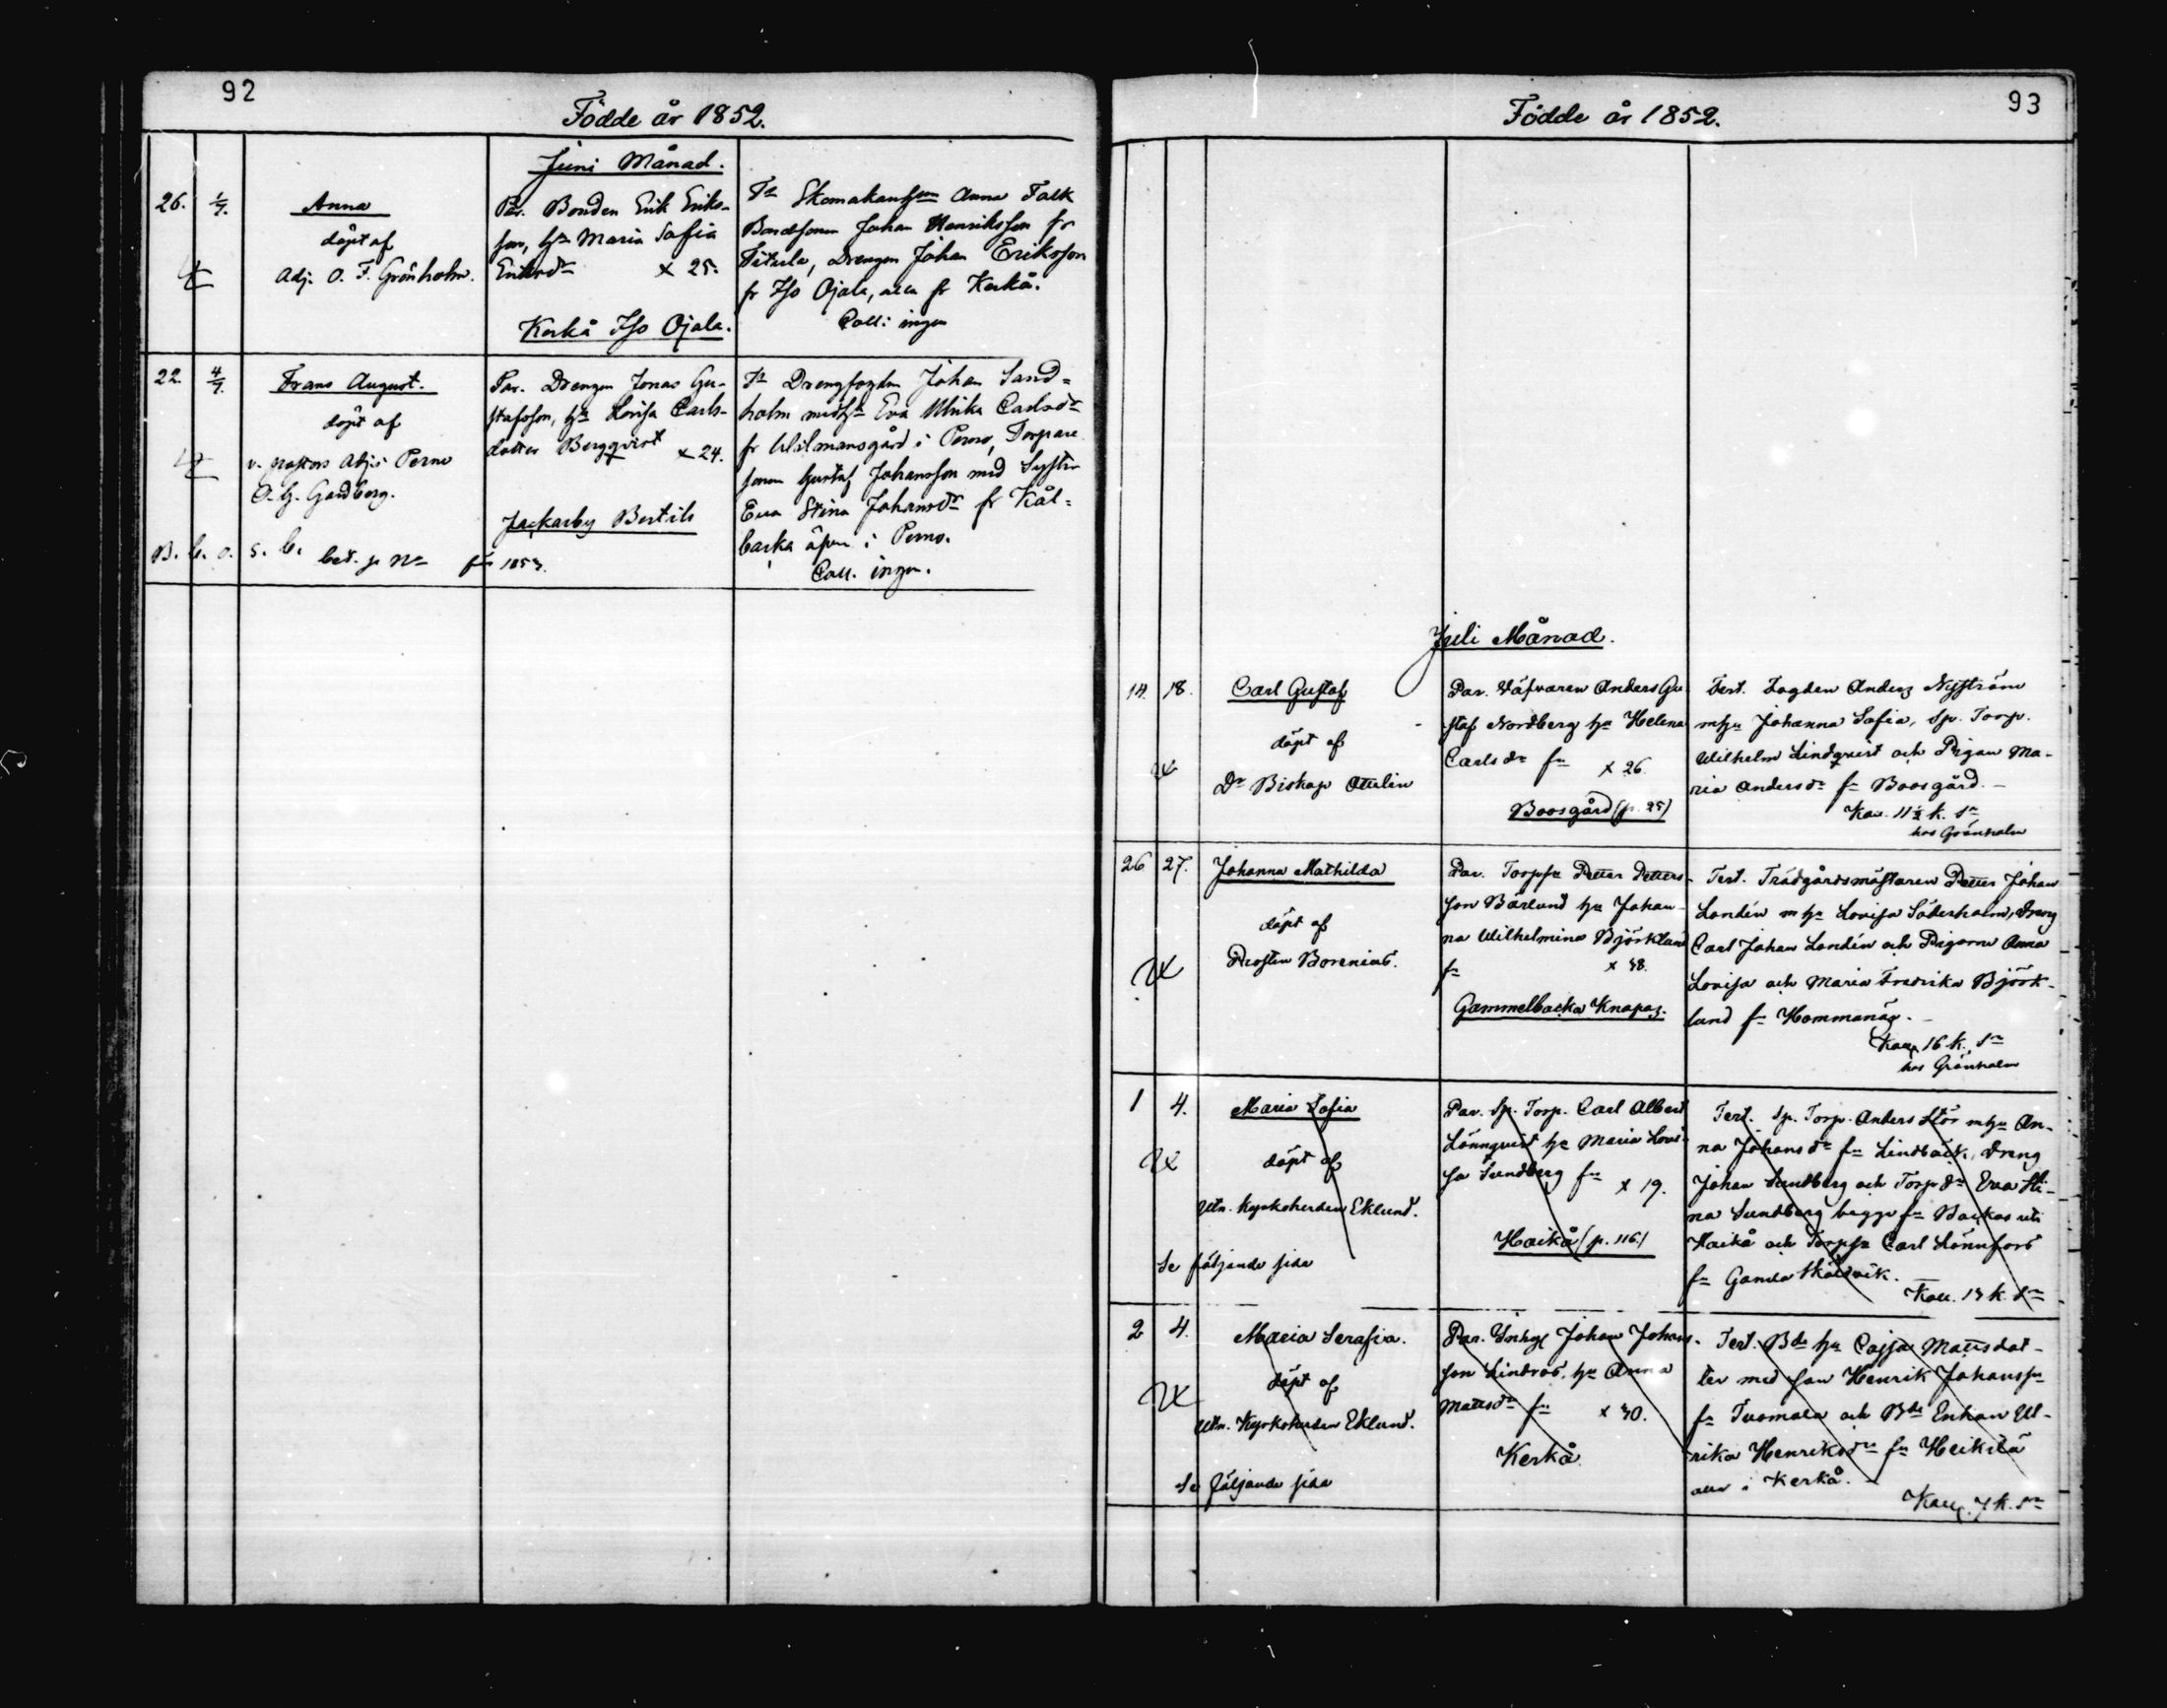 92
Födde år 1852.
Juni Månad.
26. 1/7. Anna
döpt af
Adj. O. F. Grönholm.
Par. Bonden Erik Eriks-
son, hu Maria Sofia
Eriksdr x 25.
Kerkå Iso Ojala.
Tt Anna Falk
Bondsonen Johan Henriksson fr
Drengen Johan Eriksson
fr Iso Ojala, alla fr Kerkå.
Coll: ingen
22. 4/7. Frans August.
döpt af
v. pastors Adj: i Perno
O. H. Gardberg.
Par. Drengen Jonas Gu-
stafsson, hu Lovisa Carls-
dotter Bergqvist x 24.
Jackarby Bertils
Tt Drengfogden Johan Sand-
holm med hu Eva Ulrika Carlsdr
fr Ulilmansgård i Perno, Torpare
sonen Gustaf Johansson med Syster
Eva Stina Johansdr fr Kål-
backa i Perno.
Coll. ingen.
bet. fr 1853.
93
Födde år 1852.
Juli Månad.
14. 18. Carl Gustaf
döpt af
Dr Biskop Ottelin
Par. Väfvaren Anders Gu-
staf Nordberg hu Helena
Carlsdr fr x 26.
Boosgård (p. 25)
Test. Fogden Anders Nyström
m hu Johanna Sofia, Sp. Torp.
Wilhelm Lindqvist och Pigan Ma-
ria Andersdr fr Boosgård. –
11 1/2 k. Sr
hos Grönholm
26 27. Johanna Mathilda
döpt af
Prosten Borenius.
Par. Torp Petter Petters-
son Bärlund hu Johan-
na Wilhelmina Björklund
fr x 38.
Gammelbacka Knapas.
Test. Trädgårdsmästaren Petter Johan
Londén m hu Lovisa Söderholm, Dreng
Carl Johan Londén och Pigorna Anna
Lovisa och Maria Fredrika Björk-
lund fr Hommanäs. –
Koll. 16 k. Sr
hos Grönholm
1 4. Maria Sofia
döpt af
Utn. Kyrkoherden Eklund.
Se följande sida
Par. Sp. Torp. Carl Albert
Lönnqvist hu Maria Lovi-
sa Sundberg fr x 19.
Haikå (p. 116)
Test. Sp. Torp. Anders Stör m hu An-
na Johansdr fr Lindbäck, Dreng
Johan Sundberg och Torp.dr Eva Sti-
na Sundberg begge fr Backas uti
Haikå och Torp Carl Lönnfors
fr Gamla Sköldvik.
Koll. 13 k. Sr
2 4. Maria Serafia.
döpt af
Utn. Kyrkoherden Eklund.
Se följande sida
Par. Inhys Johan Johans-
son Lindros, hu Anna
Mattsdr fr x 30.
Kerkå
Test. Bde hu Cajsa Mattsdot-
ter med son Henrik Johansson
fr Tuomala och Bde Enkan Ul-
rika Henriksdr fr Heikilä
alla i Kerkå. –
Koll. 7 k. Sr